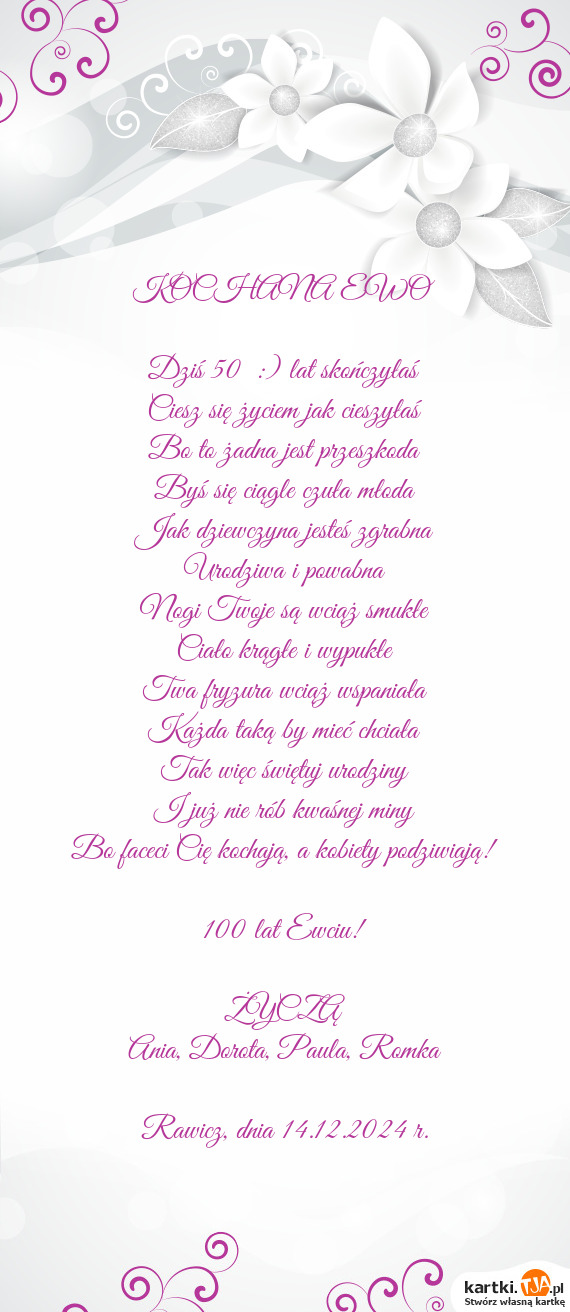 KOCHANA EWO
Dziś 50 :) lat skończyłaś
Ciesz się życiem jak cieszyłaś
Bo to żadna jest przeszkoda
Byś się ciągle czuła młoda
Jak dziewczyna jesteś zgrabna
Urodziwa i powabna
Nogi Twoje są wciąż smukłe
Ciało krągłe i wypukłe
Twa fryzura wciąż wspaniała
Każda taką by mieć chciała
Tak więc świętuj urodziny
I już nie rób kwaśnej miny
Bo faceci Cię kochają, a kobiety podziwiają!
100 lat Ewciu!
ŻYCZĄ
Ania, Dorota, Paula, Romka
Rawicz, dnia 14.12.2024 r.
kartki.TJA.pl
Stwórz własną kartkę